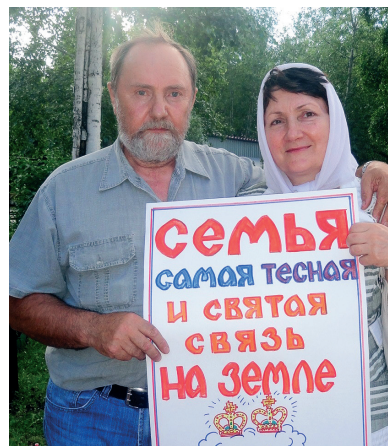 СЕМЬЯ
САМАЯ ТЕСНАЯ
И СВЯТАЯ
СВЯЗЬ
НА ЗЕМЛЕ